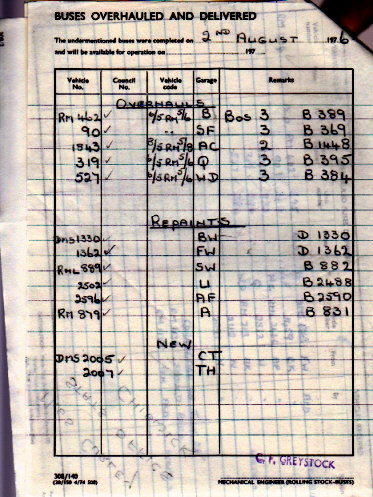 BUSES OVERHAULED AND DELIVERED
The undermentioned buses were completed on 2ND AUGUST 1976
and will be available for operation on 197
Vehicle No. Council No. Vehicle code Garage Remarks
OVERHAULS
RM 462 ✓ 6/5RM5/6 B BOS 3 B 389
90 ✓ " SF 3 B 369
1843 ✓ 8/5RM5/8 AC 2 B 1448
319 ✓ 6/5RM5/6 Q 3 B 395
527 ✓ 6/5RM5/6 WD 3 B 384
REPAINTS
DMS 1330 ✓ BW D 1330
1362 ✓ FW D 1362
RML 889 ✓ SW B 882
2502 ✓ U B 2488
2596 ✓ AF B 2590
RM 879 ✓ A B 831
NEW
DMS 2005 ✓ CT
2007 ✓ TH
CHISWICK
STATS OFFICE
308/140
C. P. GREYSTOCK
MECHANICAL ENGINEER (ROLLING STOCK—BUSES)